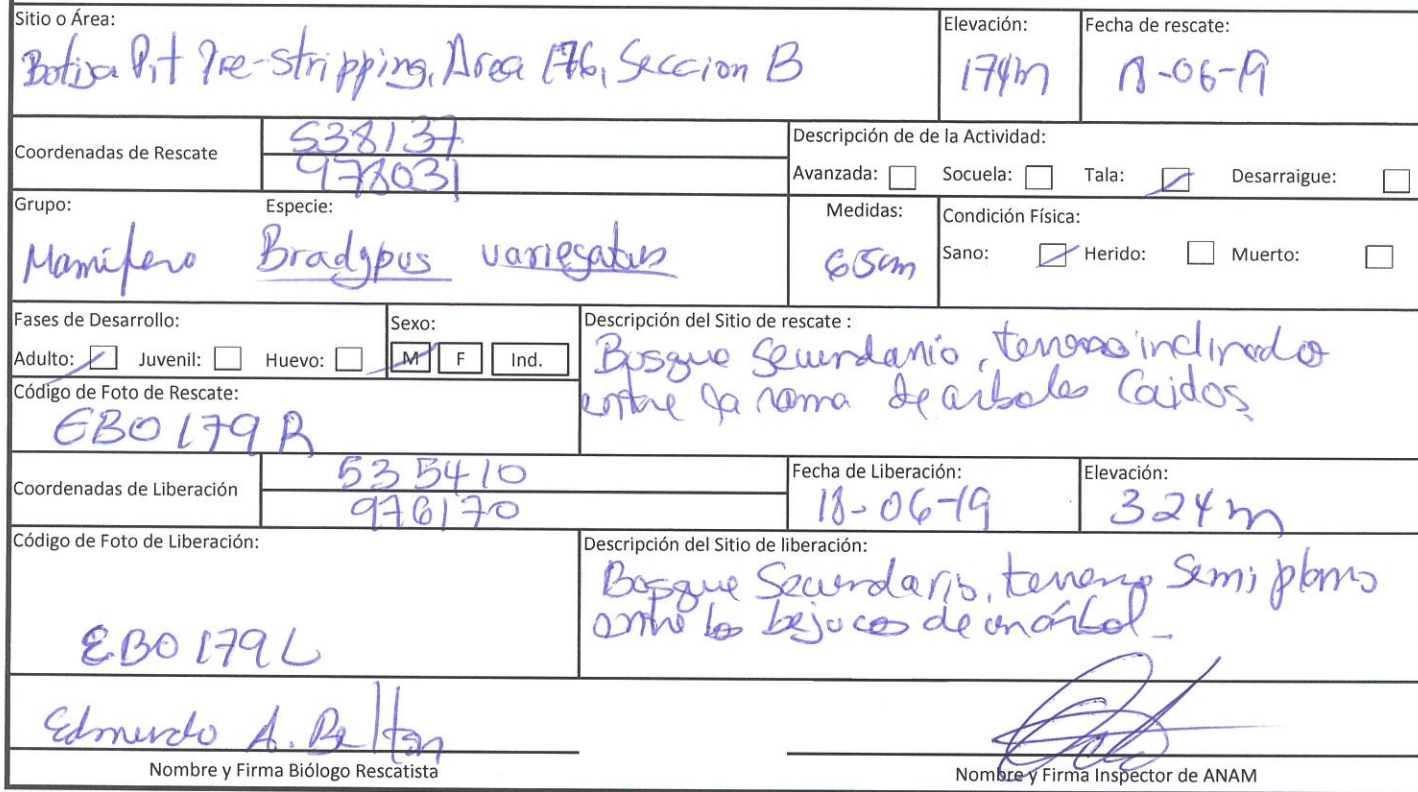 Sitio o Área:
Botija Pit Pre-Stripping, Area 176, Seccion B
Elevación:
174m
Fecha de rescate:
18-06-19
Coordenadas de Rescate
538137
978031
Descripción de de la Actividad:
Avanzada: Socuela: Tala: Desarraigue:
Grupo:
Mamifero
Especie:
Bradypus variegatus
Medidas:
65cm
Condición Física:
Sano: Herido: Muerto:
Fases de Desarrollo:
Adulto: Juvenil: Huevo:
Sexo:
M F Ind.
Descripción del Sitio de rescate :
Bosque Secundario, terreno inclinado
entre la rama de arboles Caidos
Código de Foto de Rescate:
EBO 179 R
Coordenadas de Liberación
535410
976170
Fecha de Liberación:
18-06-19
Elevación:
324m
Código de Foto de Liberación:
EBO 179 L
Descripción del Sitio de liberación:
Bosque Secundario, terreno Semi plano
entre los bejucos de un árbol
Edmundo A. Belton
Nombre y Firma Biólogo Rescatista
Nombre y Firma Inspector de ANAM